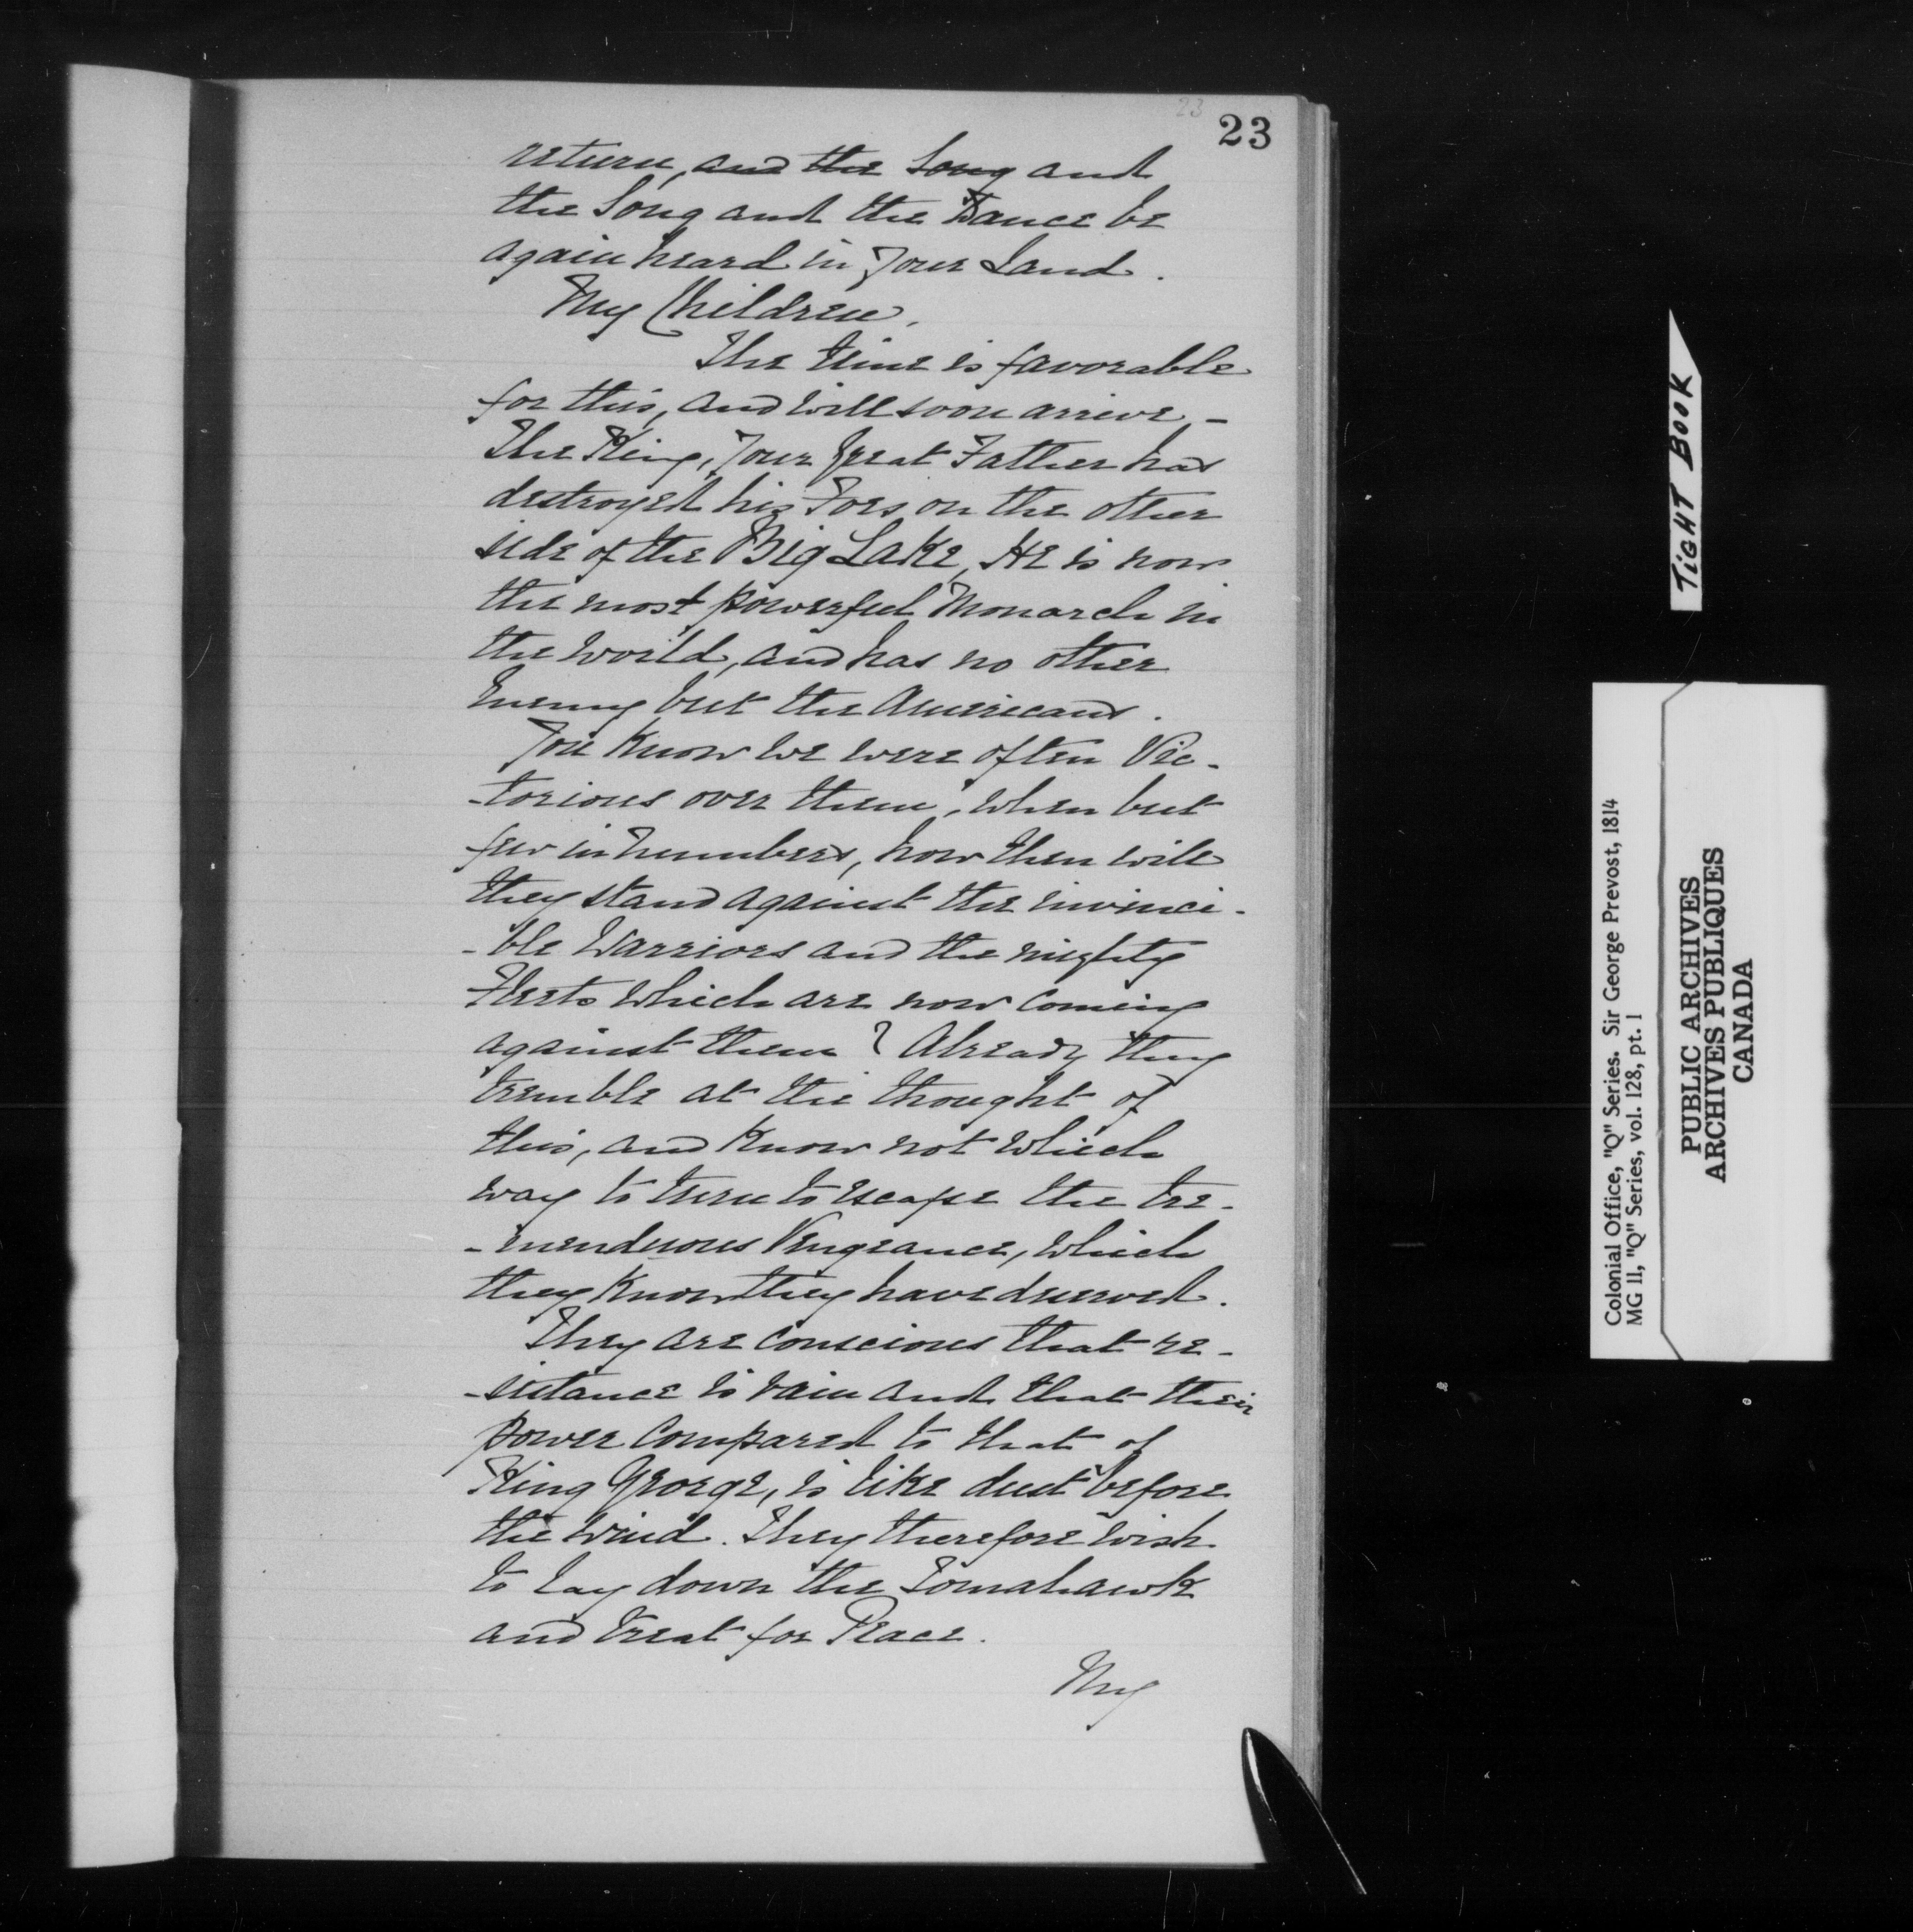 23
23
return, and the Song and
the Song and the Dance be
again heard in Your Land.
My Children,
The time is favorable
for this, and will soon arrive –
The King, Your Great Father has
destroyed his Foes on the other
side of the Big Lake, He is now
the most powerful Monarch in
the world, and has no other
Enemy but the Americans.
You know we were often Vic-
-torious over them, when but
few in Numbers, how then will
they stand against the invinci-
-ble Warriors and the mighty
Fleets which are now coming
against them? Already they
tremble at the thought of
this, and know not which
way to turn to escape the tre-
-menduous Vengeance, which
they know they have deserved.
They are conscious that re-
-sistance is vain and that their
power compared to that of
King George, is like dust before
the wind. They therefore wish
to lay down the Tomahawk
and treat for Peace.
My
TIGHT BOOK
Colonial Office, "Q" Series. Sir George Prevost, 1814
MG 11, "Q" Series, vol. 128, pt. 1
PUBLIC ARCHIVES
ARCHIVES PUBLIQUES
CANADA